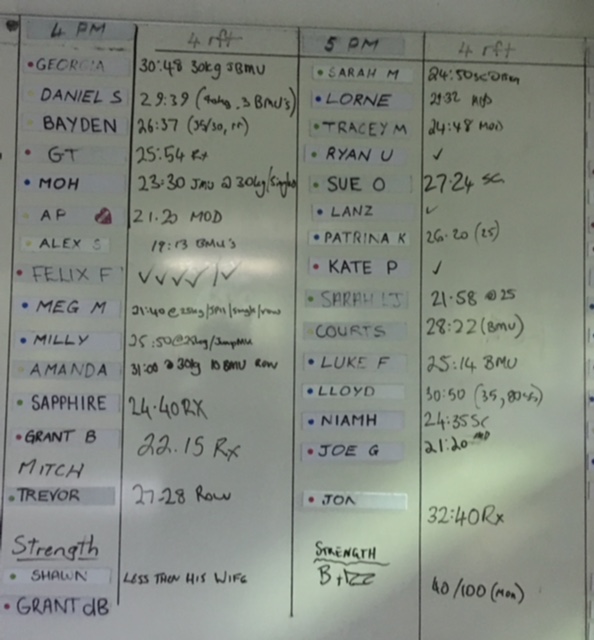 4 PM 4 rft
GEORGIA 30:48 30kg JBMU
DANIEL S 29:39 (40kg, 3 BMU's)
BAYDEN 26:37 (35/30,
GT 25:54 Rx
MOH 23:30 JMU @ 30kg/singles
AP 21.20 MOD
ALEX S 19:13 BMU's
FELIX F ✓✓✓✓/✓
MEG M 21:40 @ 25kg/
MILLY 25:50@25kg/JumpMU
AMANDA 31:00 @ 30kg 10 BMU Row
SAPPHIRE 24:40RX
GRANT B 22.15 Rx
MITCH
TREVOR 27-28 Row
Strength
SHAWN LESS THEN HIS WIFE
GRANT dB
5 PM 4 rft
SARAH M 24:50
LORNE 29:32
TRACEY M 24:48 MOD
RYAN U ✓
SUE O 27:24 SC
LANZ ✓
PATRINA K 26.20 (25)
KATE P ✓
SARAH 21:58 @ 25
COURTS 28:22 (BMU)
LUKE F 25:14 BMU
LLOYD 30:50 (35,
NIAMH 24:35SC
JOE G 21:20
JON 32:40Rx
STRENGTH
40/100 (Mon)